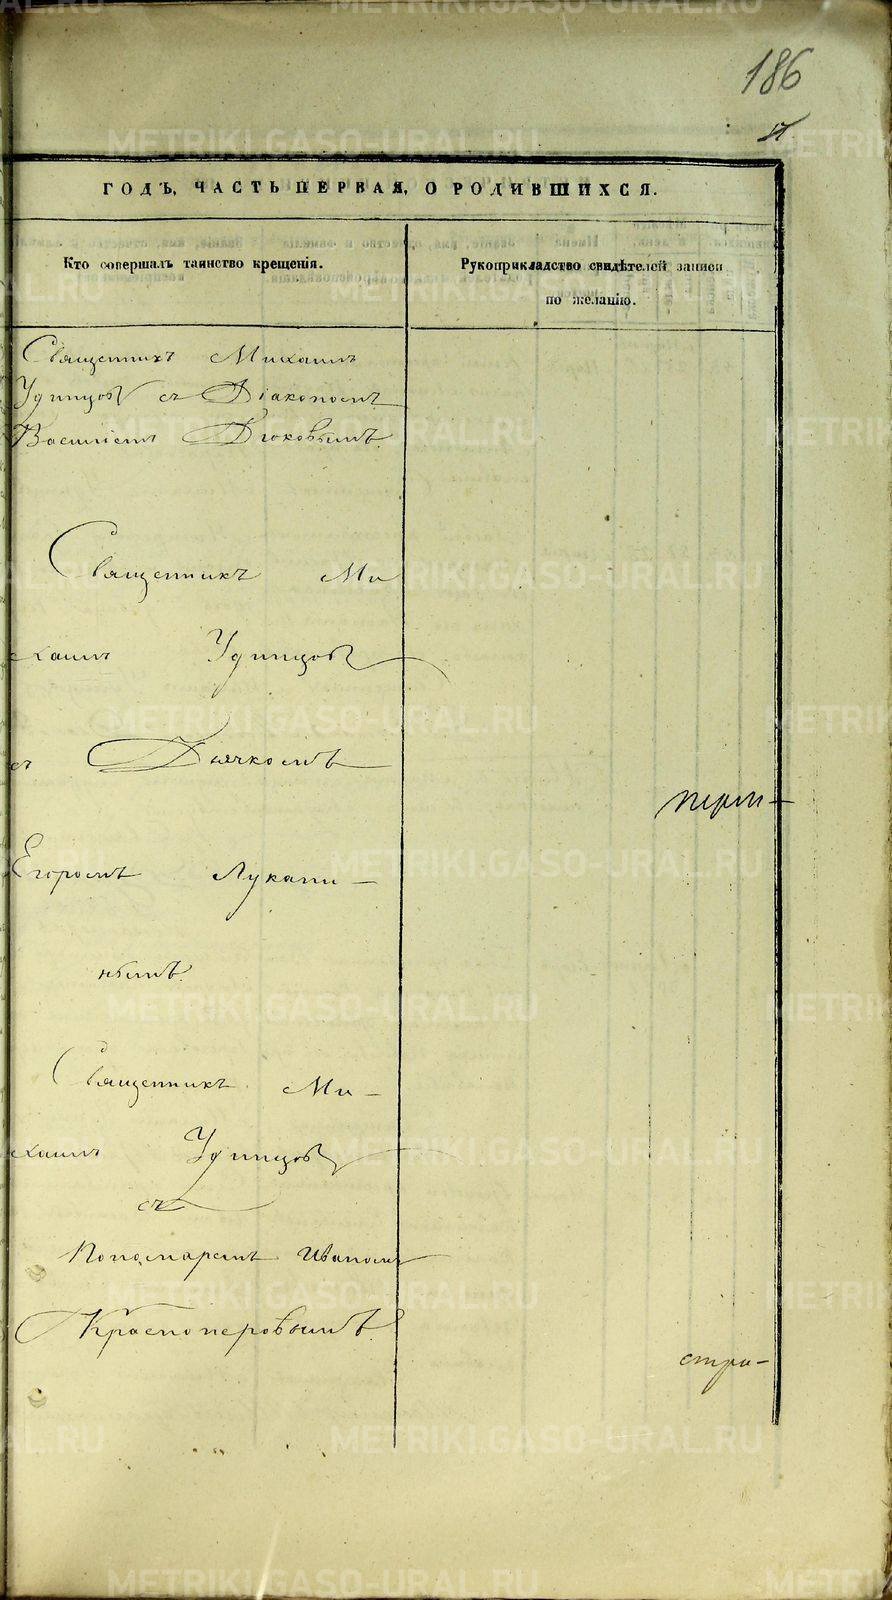 186
ГОДЪ, ЧАСТЬ ПЕРВАЯ, О РОДИВШИХСЯ.
Кто совершалъ таинство крещенія.
Рукоприкладство свидѣтелей записи
по желанію.
Священникъ Михаилъ
Удинцовъ съ Діакономъ
Василіемъ Дюковымъ.
Священникъ Ми
хаилъ Удинцовъ
съ Дьячкомъ
Егоромъ Лукани-
нымъ.
Священникъ Ми-
хаилъ Удинцовъ
съ
Пономаремъ Иваномъ
Красноперовымъ.
стра-
METRIKI.GASO-URAL.RU